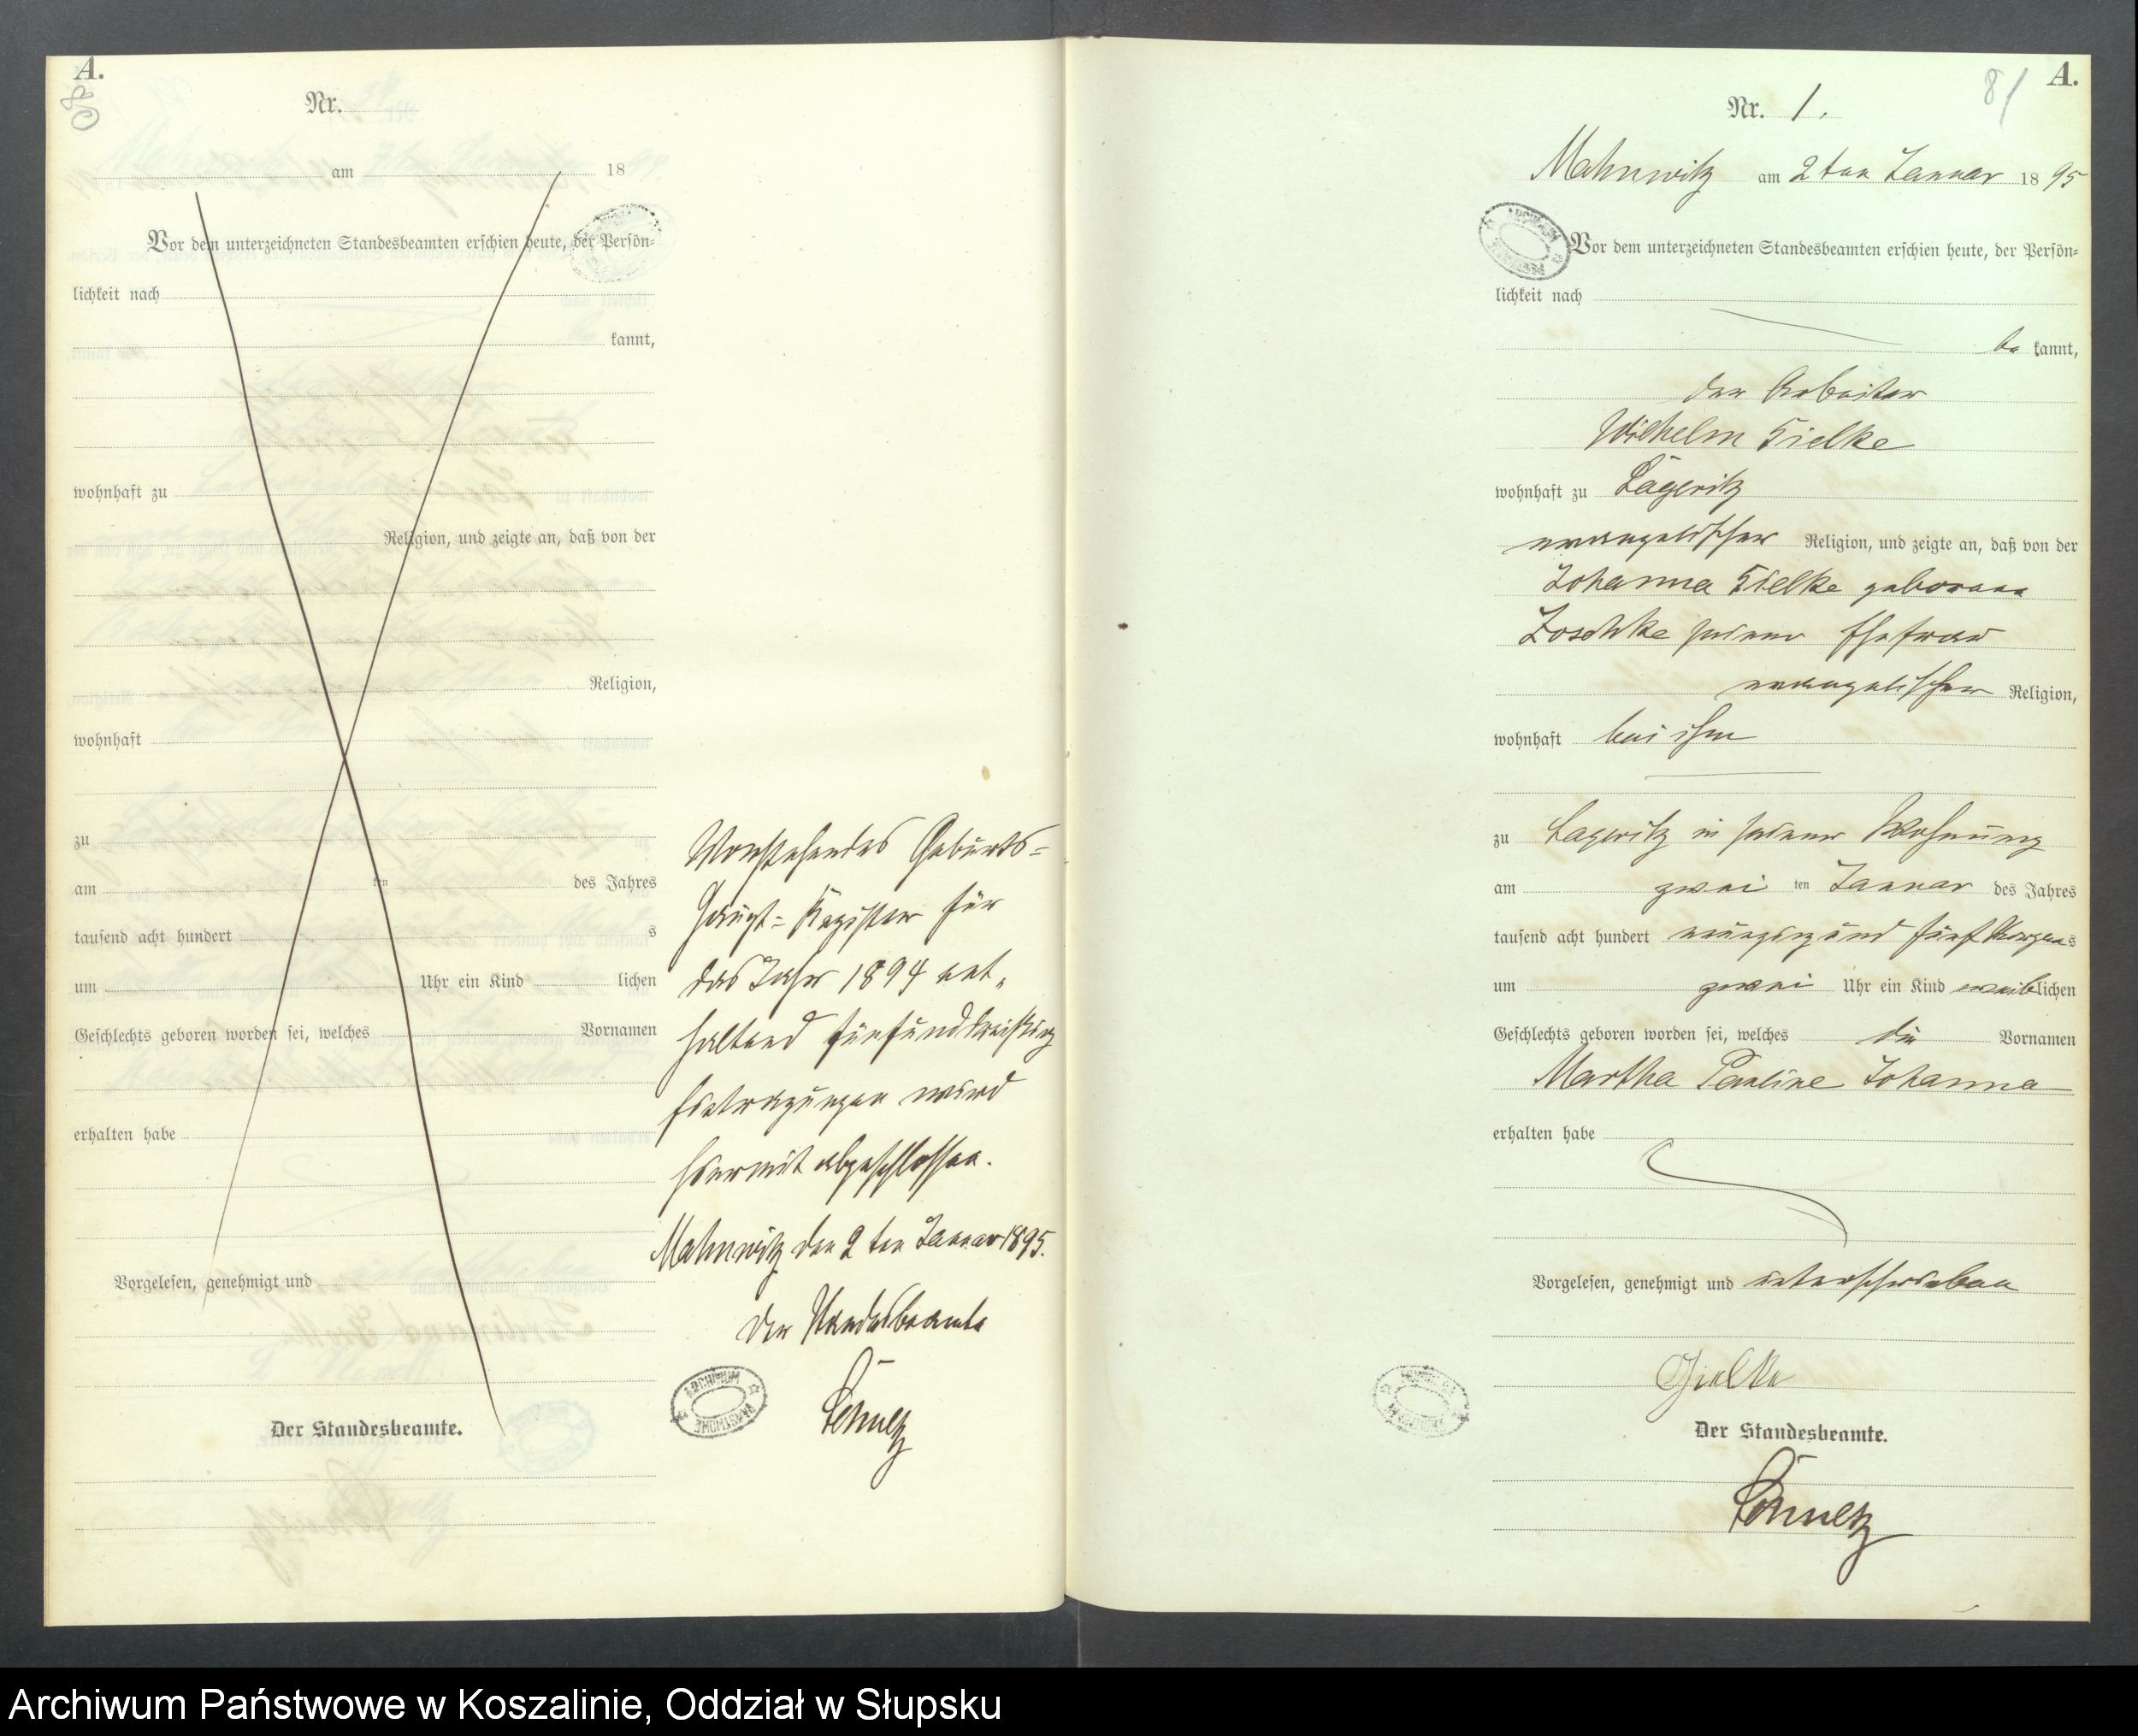 A.
80
Nr.
am 18
Vor dem unterzeichneten Standesbeamten erschien heute, der Persön=
lichkeit nach
kannt,
wohnhaft zu
Religion, und zeigte an, daß von der
Religion,
wohnhaft
zu
am ten des Jahres
tausend acht hundert s
um Uhr ein Kind lichen
Geschlechts geboren worden sei, welches Vornamen
erhalten habe
Vorgelesen, genehmigt und
Der Standesbeamte.
Vorstehendes Geburts=
Haupt=Register für
das Jahr 1894 ent=
haltend fünfunddreißig
Eintragungen wird
hiermit abgeschlossen.
Mahnwitz den 2ten Januar 1895.
Der Standesbeamte
Schultz
ARCHIWUM PAŃSTWOWE
81
A.
Nr. 1.
Mahnwitz am 2ten Januar 1895
Vor dem unterzeichneten Standesbeamten erschien heute, der Persön=
lichkeit nach
bekannt,
der Arbeiter
Wilhelm Gielke
wohnhaft zu Lägeritz
evangelischer Religion, und zeigte an, daß von der
Johanna Gielke geborene
Zoschke seiner Ehefrau
evangelischer Religion,
wohnhaft bei ihm
zu Lageritz in seiner Wohnung
am zwei ten Januar des Jahres
tausend acht hundert neunzig und fünf Morgens
um zwei Uhr ein Kind weiblichen
Geschlechts geboren worden sei, welches die Vornamen
Martha Pauline Johanna
erhalten habe
Vorgelesen, genehmigt und unterschrieben
Gielke
Der Standesbeamte.
Schultz
Archiwum Państwowe w Koszalinie, Oddział w Słupsku